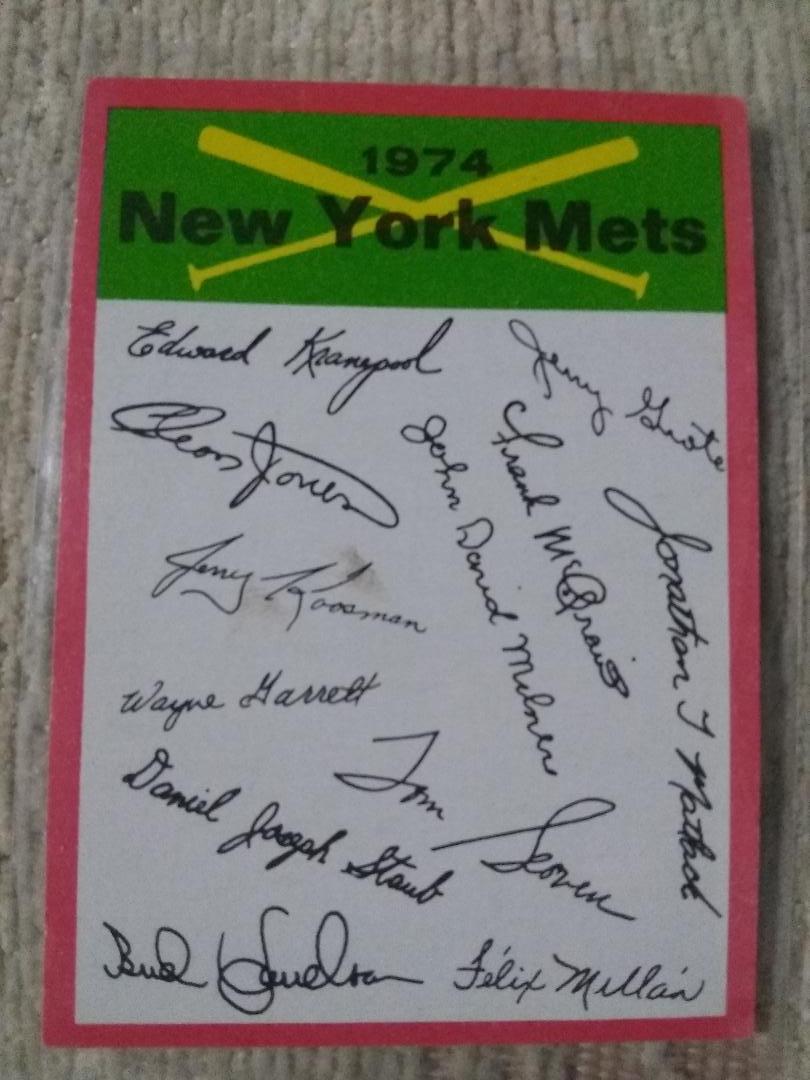 1974
New York Mets
Edward Kranepool
Jerry Grote
Cleon Jones
John David Milner
Frank McGraw
Jonathan T Matlack
Jerry Koosman
Wayne Garrett
Tom Seaver
Daniel Joseph Staub
Bud Harrelson
Félix Millán